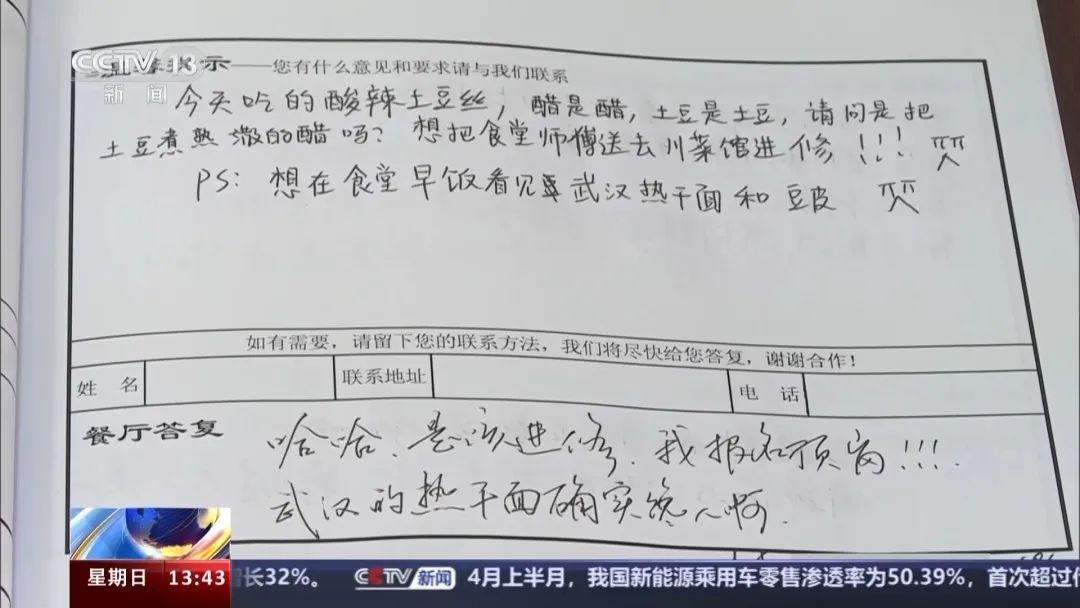 CCTV 13
新闻
温馨提示——您有什么意见和要求请与我们联系
今天吃的酸辣土豆丝，醋是醋，土豆是土豆，请问是把
土豆煮熟 潵的醋吗？想把食堂师傅送去川菜馆进修！！！
PS：想在食堂早饭看见武汉热干面和豆皮
如有需要，请留下您的联系方法，我们将尽快给您答复，谢谢合作！
姓 名
联系地址
电 话
餐厅答复
哈哈，是该进修，我报名顶岗！！！
武汉的热干面确实馋人啊
星期日 13:43
长32%。 CCTV 新闻 4月上半月，我国新能源乘用车零售渗透率为50.39%，首次超过